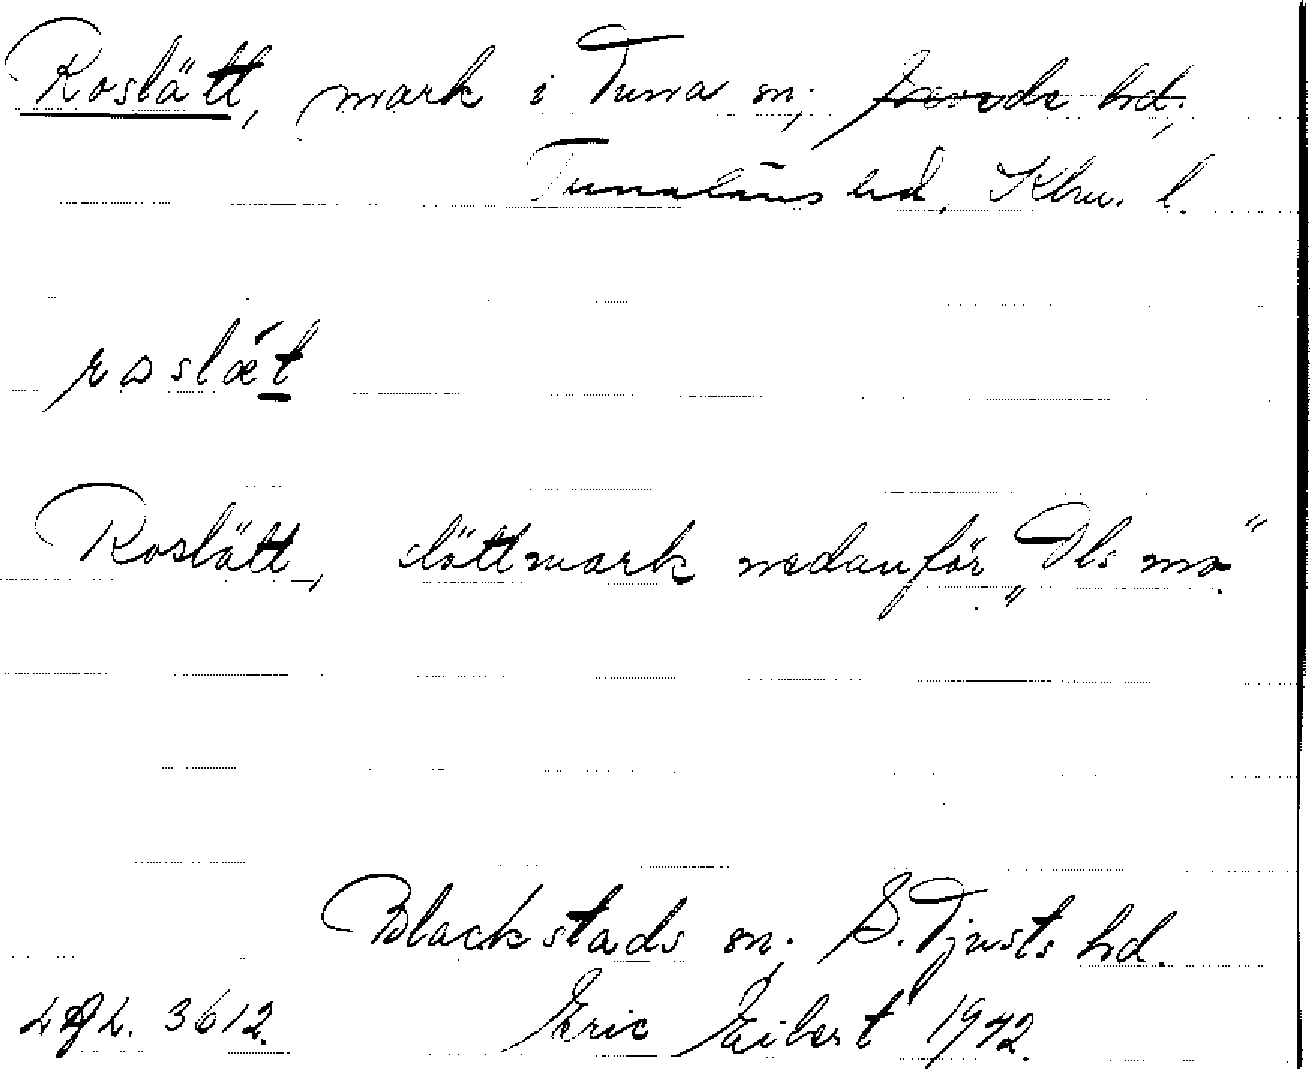 Roslätt, mark i Tuna sn, hd,
Tunaläns hd. Klm. l.
roslǽt
Roslätt, slåttmark nedanför "Ols mo"
Blackstads sn, S. Tjusts hd.
3612. Eric Eibert 1942.